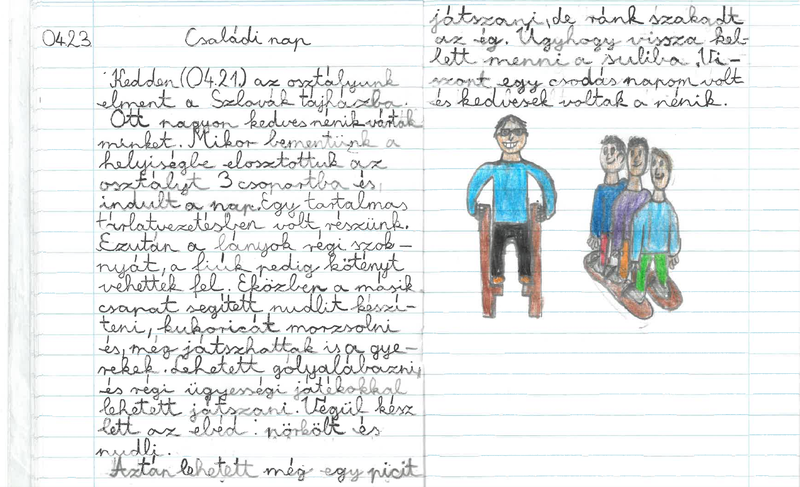 0423
Családi nap
Kedden (04.21.) az osztályunk
elment a Szlovák tájházba.
Ott nagyon kedves nénik vártak
minket. Mikor bementünk a
helyiségbe elosztottuk az
osztályt 3 csoportba és
indult a nap. Egy tartalmas
tárlatvezetésben volt részünk.
Ezután a lányok régi szok-
nyát, a fiúk pedig kötényt
vehettek fel. Eközben a másik
csapat segített nudlit készí-
teni, kukoricát morzsolni
és, még játszhattak is a gye-
rekek. Lehetett gólyalábazni,
és régi ügyességi játékokkal
lehetett játszani. Végül kész
lett az ebéd: pörkölt és
nudli.
Aztán lehetett még egy picit
játszani, de ránk szakadt
az ég. Úgyhogy vissza kel-
lett menni a suliba. Vi-
szont egy csodás napom volt
és kedvesek voltak a nénik.